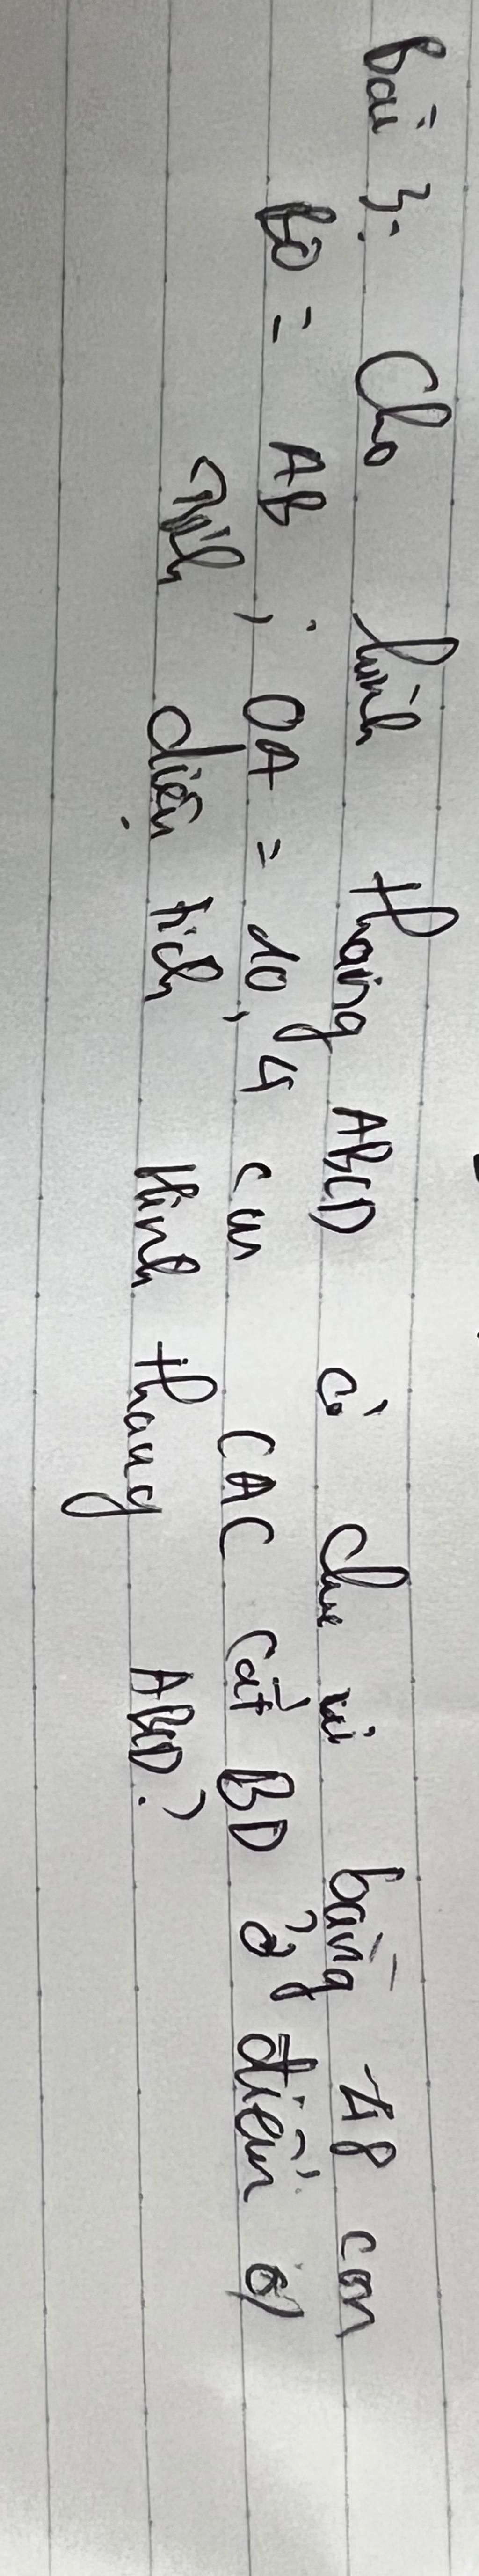 bài 3: Cho hình thang ABCD có chu vi bằng 48 cm
BD = AB ; OA = 10,4 cm (AC cắt BD ở điểm O)
Tính diện tích Hình thang ABCD?